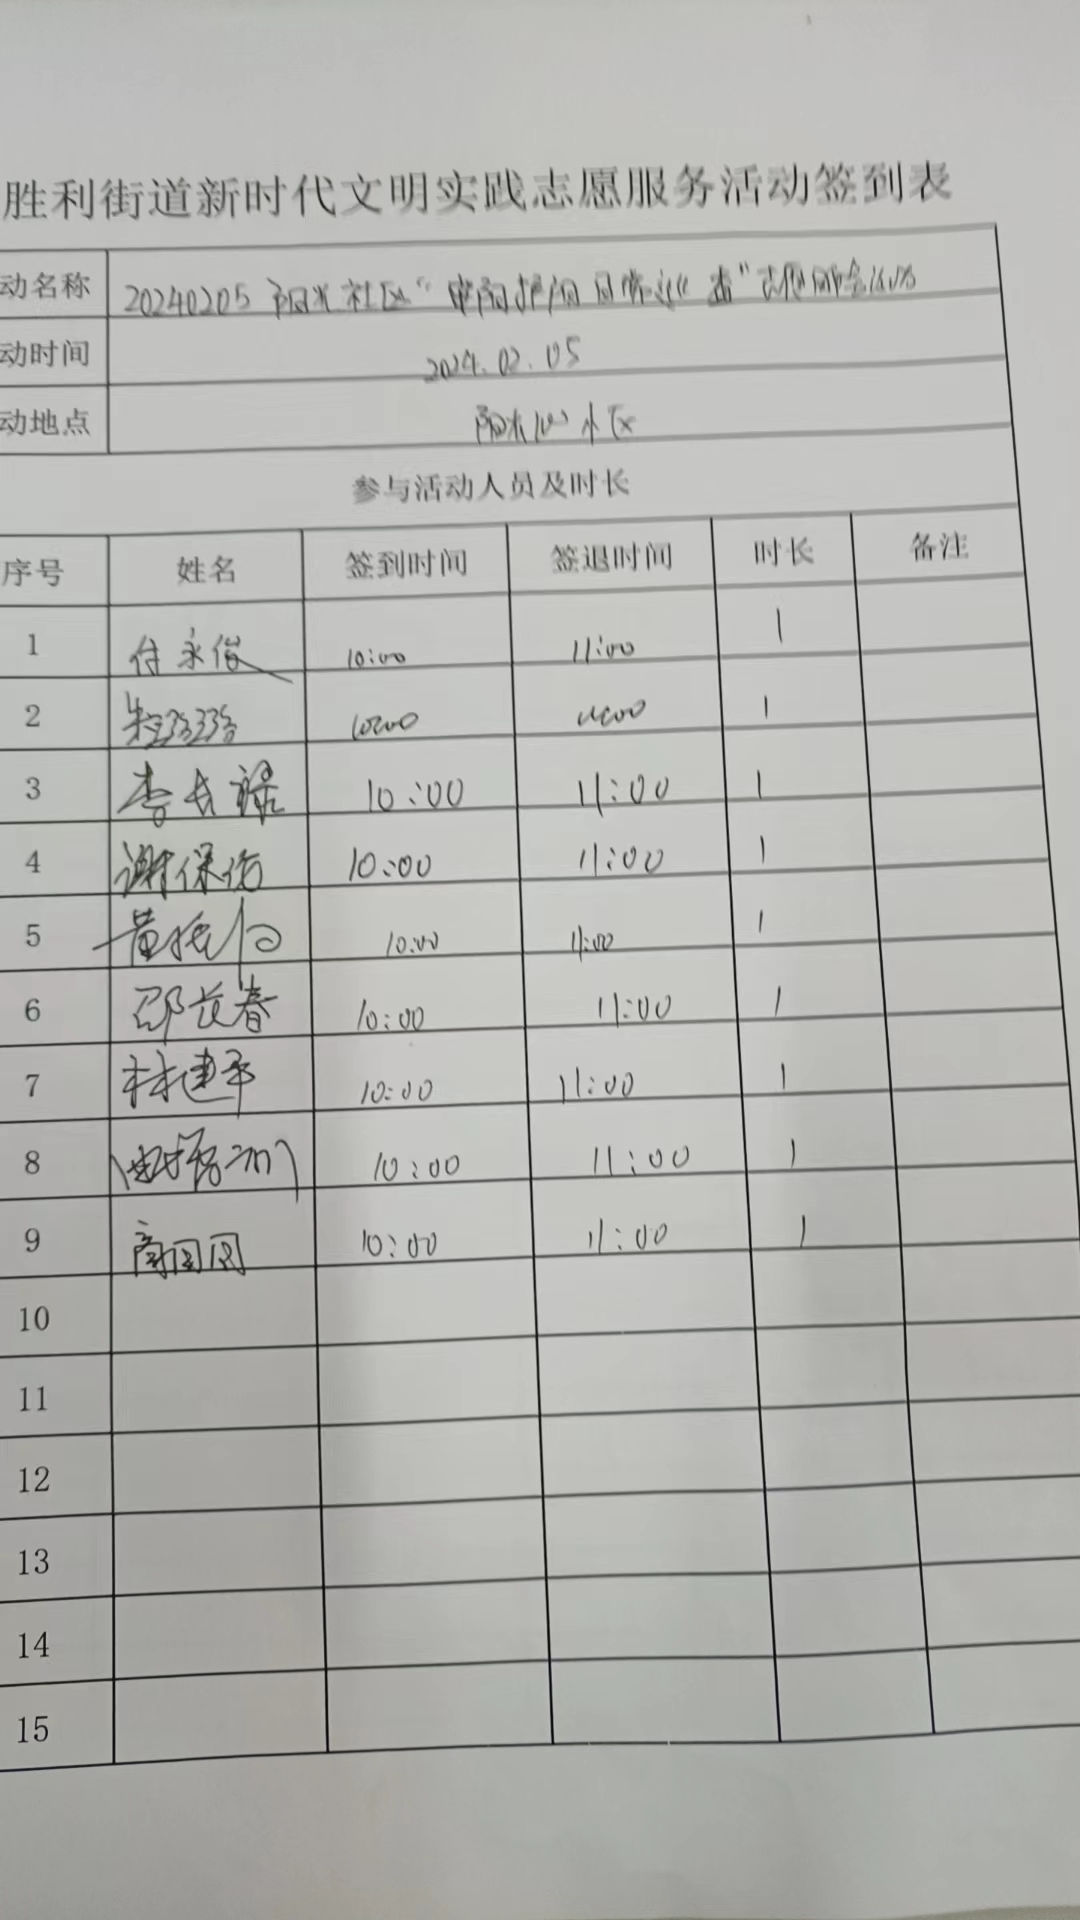 胜利街道新时代文明实践志愿服务活动签到表
动名称 20240205 阳光社区“ 日常巡查”志愿服务活动
动时间 2024.02.05
动地点 阳光 小区
参与活动人员及时长
序号 姓名 签到时间 签退时间 时长 备注
1 付永俊 10:00 11:00 1
2 朱玲玲 10:00 11:00 1
3 李长禄 10:00 11:00 1
4 谢保 10:00 11:00 1
5 黄 10:00 11:00 1
6 邵长春 10:00 11:00 1
7 林建平 10:00 11:00 1
8 10:00 11:00 1
9 商园园 10:00 11:00 1
10
11
12
13
14
15